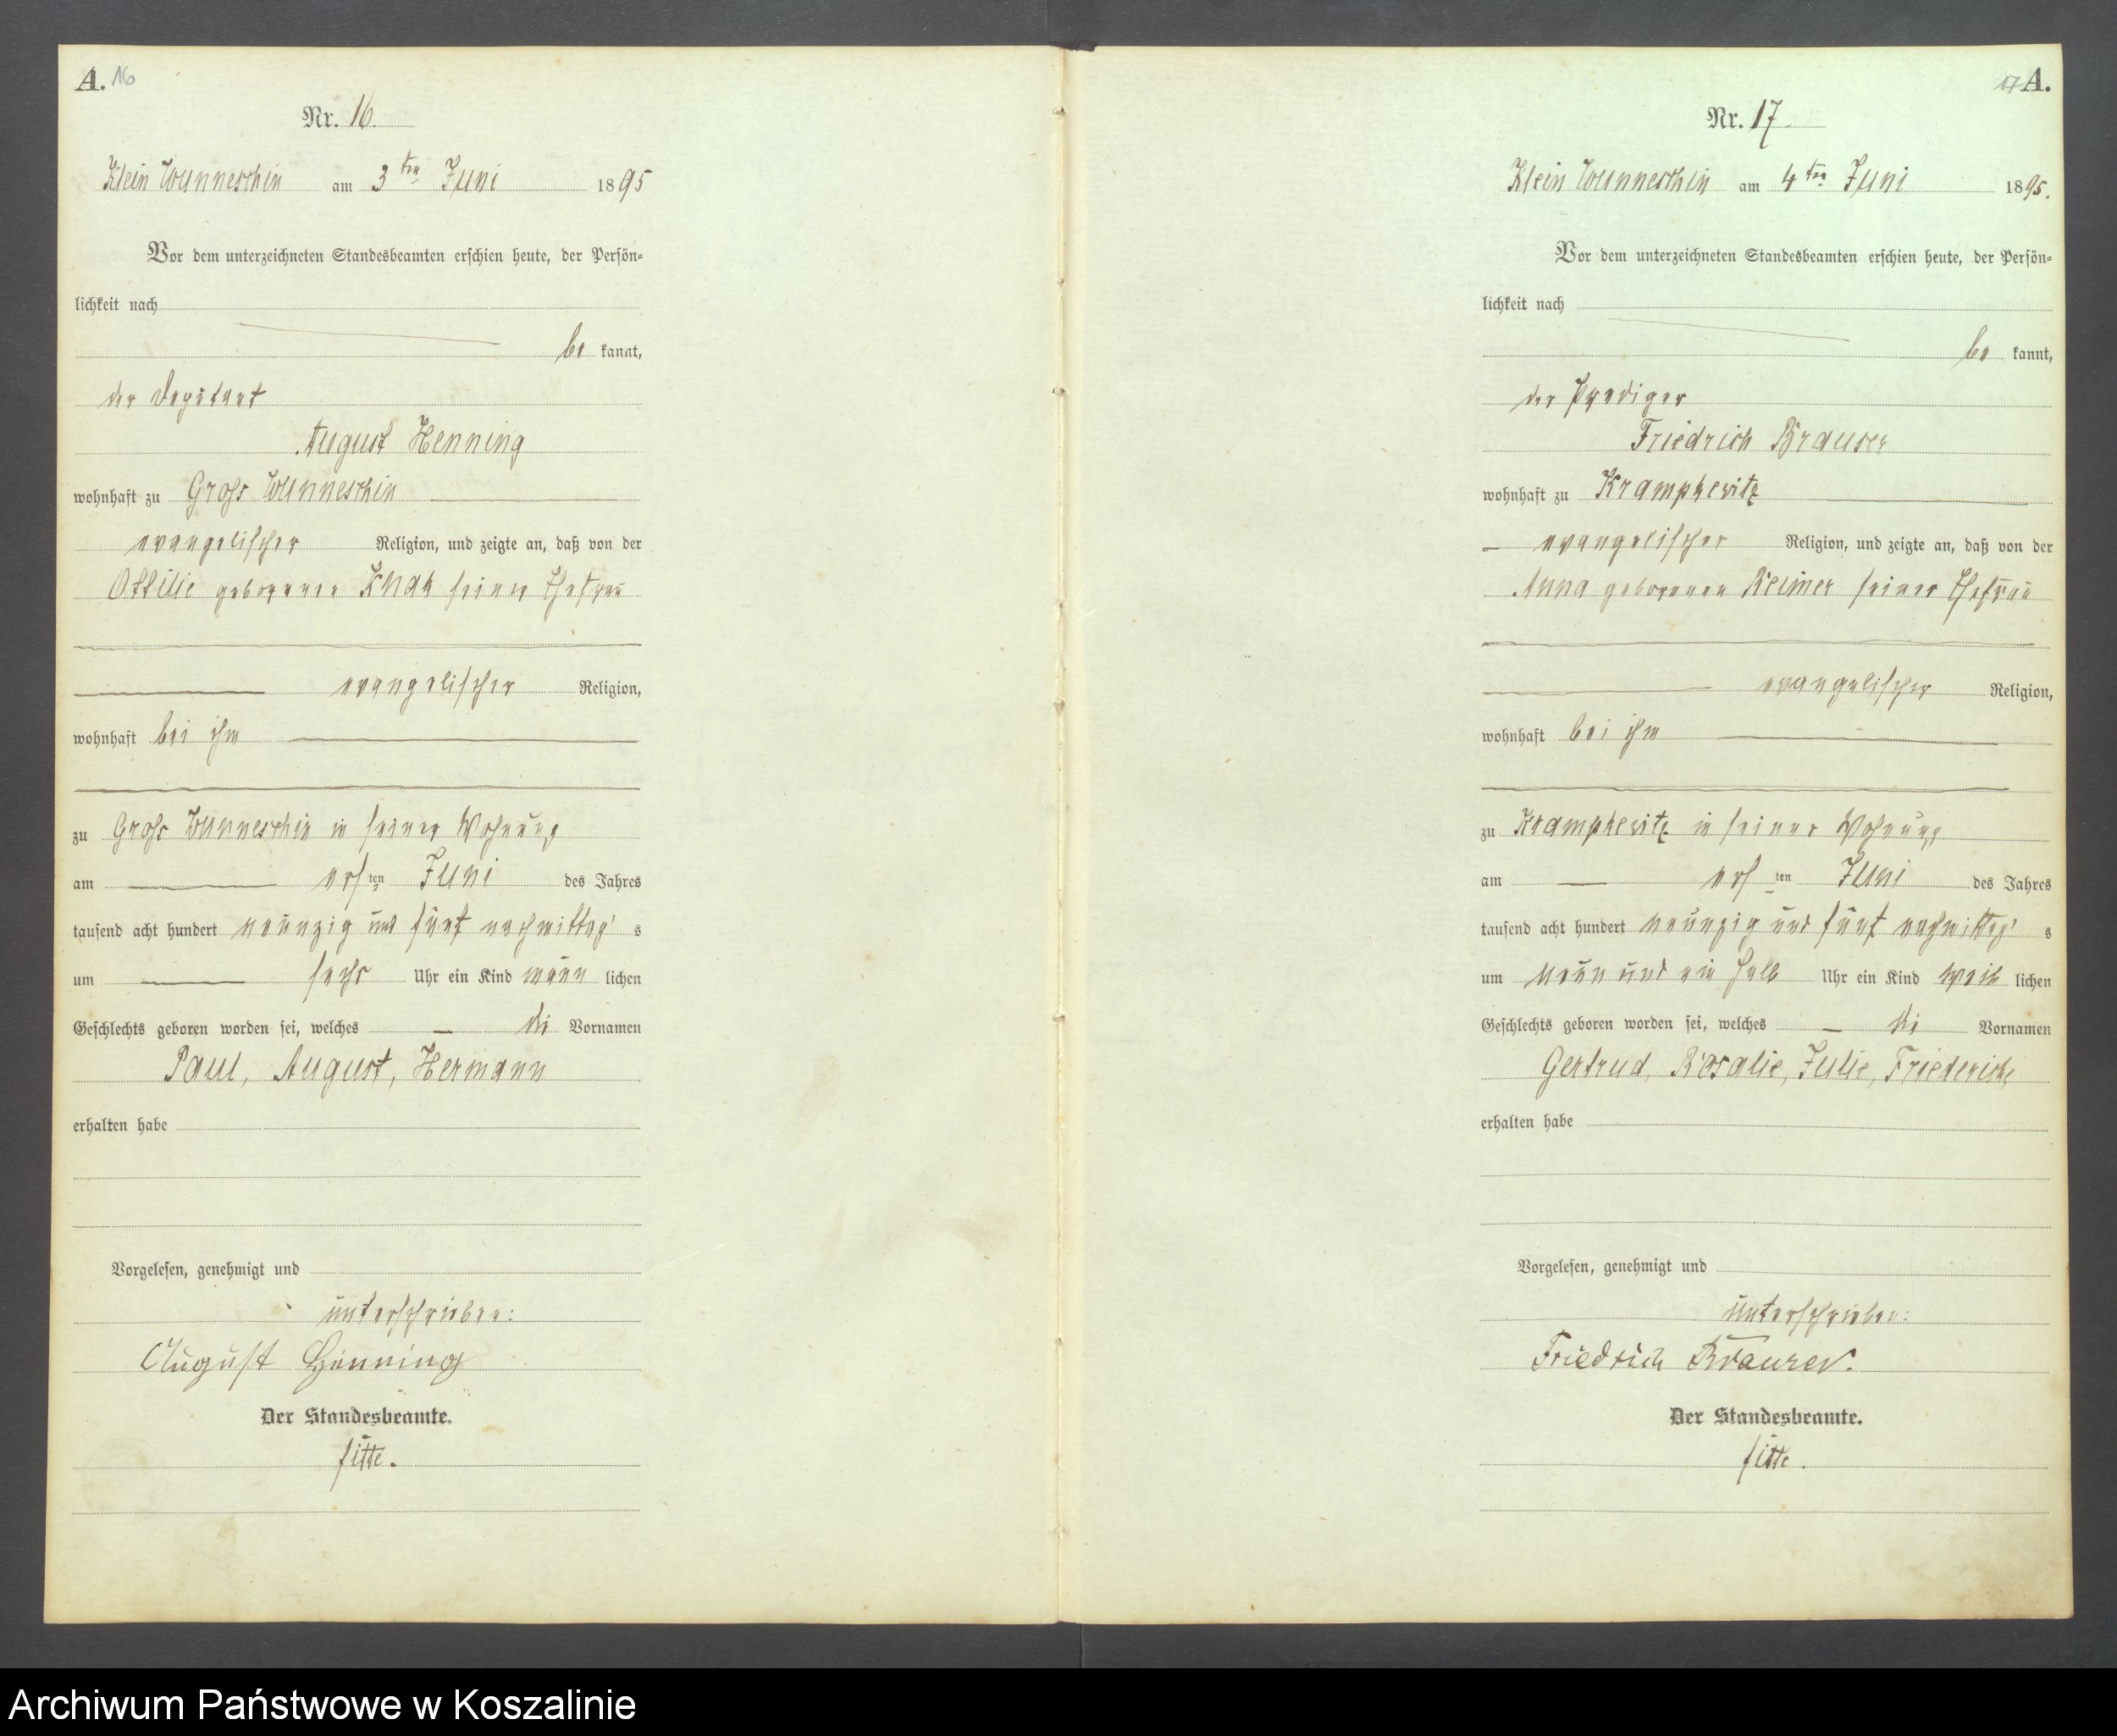 A. 16
Nr. 16.
Klein Wunneschin am 3ten Juni 1895
Vor dem unterzeichneten Standesbeamten erschien heute, der Persön-
lichkeit nach
be kannt,
der Deputant
August Henning
wohnhaft zu Gross Wunneschin
evangelischer Religion, und zeigte an, daß von der
Ottilie geborenen seiner Ehefrau
evangelischer Religion,
wohnhaft bei ihm
zu Gross Wunneschin in seiner Wohnung
am ersten Juni des Jahres
tausend acht hundert neunzig und fünf nachmittags
um sechs Uhr ein Kind männ lichen
Geschlechts geboren worden sei, welches die Vornamen
Paul, August, Hermann
erhalten habe
Vorgelesen, genehmigt und
unterschrieben:
August Henning
Der Standesbeamte.
17 A.
Nr. 17
Klein Wunneschin am 4ten Juni 1895.
Vor dem unterzeichneten Standesbeamten erschien heute, der Persön-
lichkeit nach
be kannt,
der Prediger
Friedrich Brauser
wohnhaft zu Krampkewitz
evangelischer Religion, und zeigte an, daß von der
Anna geborenen Reimer seiner Ehefrau
evangelischer Religion,
wohnhaft bei ihm
zu Krampkewitz in seiner Wohnung
am ersten Juni des Jahres
tausend acht hundert neunzig und fünf nachmittags
um neun und ein halb Uhr ein Kind weib lichen
Geschlechts geboren worden sei, welches die Vornamen
Gertrud, Rosalie, Julie, Friedericke
erhalten habe
Vorgelesen, genehmigt und
unterschrieben:
Friedrich Brauser.
Der Standesbeamte.
Archiwum Państwowe w Koszalinie